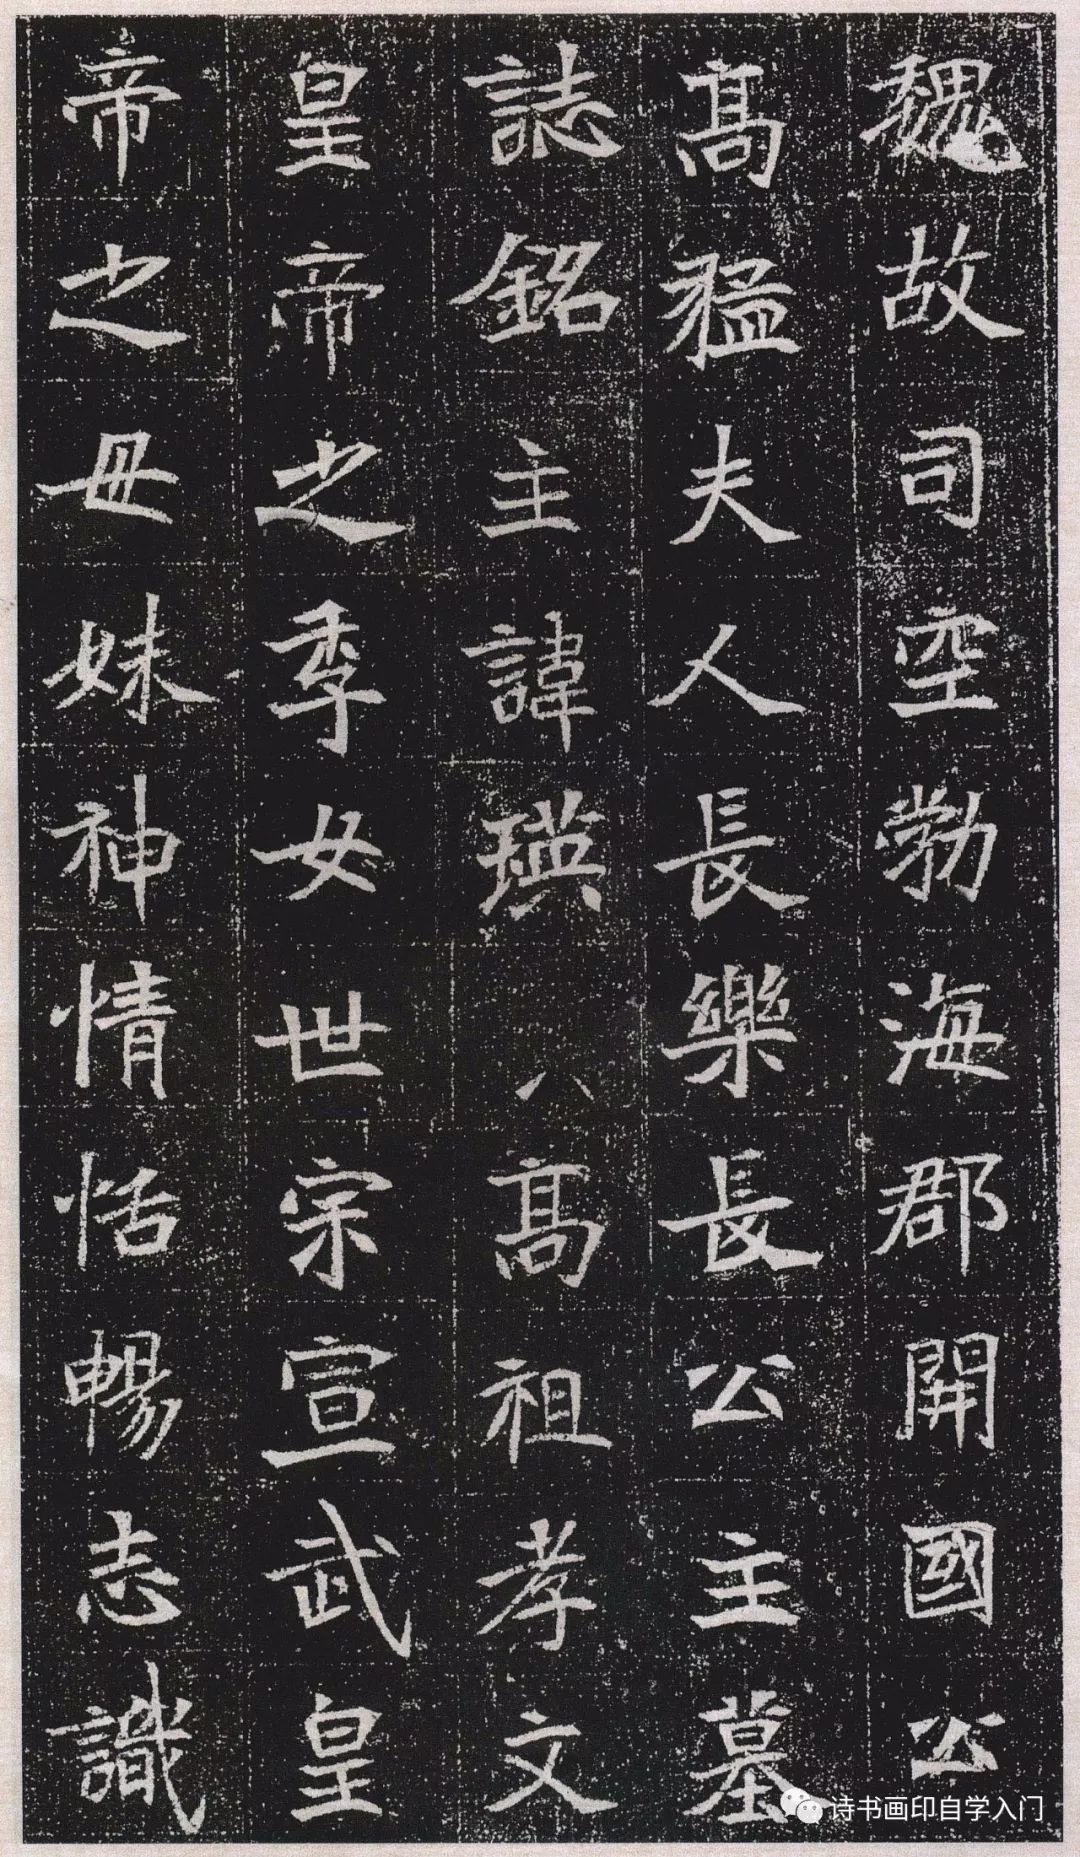 魏故司空勃海郡開國公
高猛夫人長樂長公主墓
誌銘主諱瑛八高祖孝文
皇帝之季女世宗宣武皇
帝之母妹神情恬暢志識
诗书画印自学入门